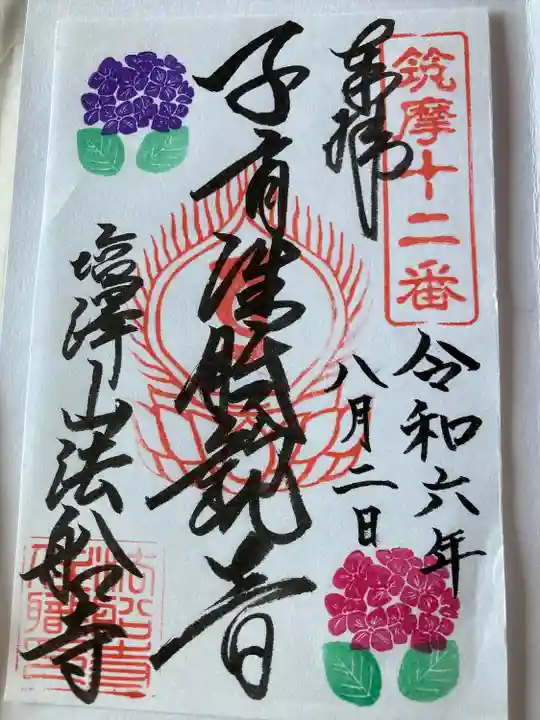 筑摩十二番
奉拝
令和六年
八月二日
子育洗観音
塩澤山法船寺